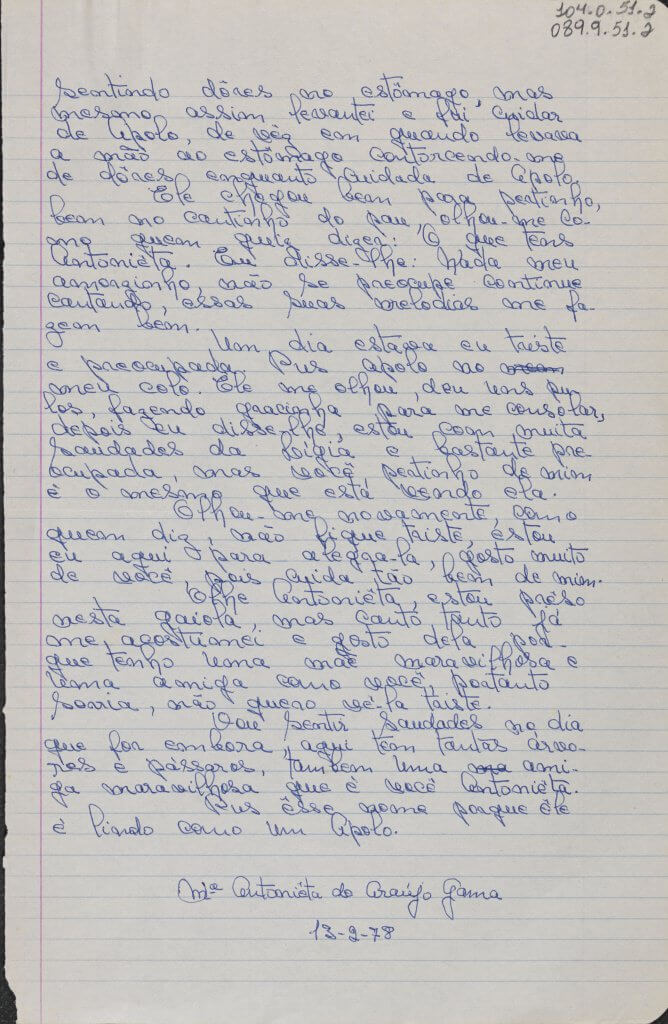 104.0.51.2
089.9.51.2
Sentindo dôres no estômago, mas
mesmo assim levantei e fui cuidar
de Apolo, de vêz em quando levava
a mão ao estômago contorcendo-me
de dôres enquanto cuidada de Apolo.
Ele chegou bem para pertinho,
bem no cantinho do pau, olhou-me co-
mo quem quiz dizer: O que tens
Antoniêta. Eu disse-lhe: Nada meu
amorzinho, não se preocupe continue
cantando, essas suas melodias me fa-
zem bem.
Um dia estava eu triste
e preocupada. Pus Apolo no
meu colo. Ele me olhou, deu uns pu-
los, fazendo gracinha para me consolar,
depois eu disse-lhe, estou com muita
saudades da Ligia e bastante pre-
ocupada, mas você, pertinho de mim
é o mesmo que está vendo ela.
Olhou-me novamente, como
quem diz, não fique triste, estou
eu aqui para alegra-la, gosto muito
de você, pois cuida tão bem de mim.
Olhe Antoniêta, estou prêso
nesta gaiola, mas canto tanto já
me acostumei e gosto dela por-
que tenho uma mãe maravilhosa e
uma amiga como você, portanto
sorria, não quero vê-la triste.
Vou sentir saudades no dia
que for embora, aqui tem tantas árvo-
res e pássaros, tambem uma ami-
ga maravilhosa que é você Antoniêta.
Pus êsse nome porque êle
é lindo como um Apolo.
Mª Antoniêta do Araújo Gama
13-2-78